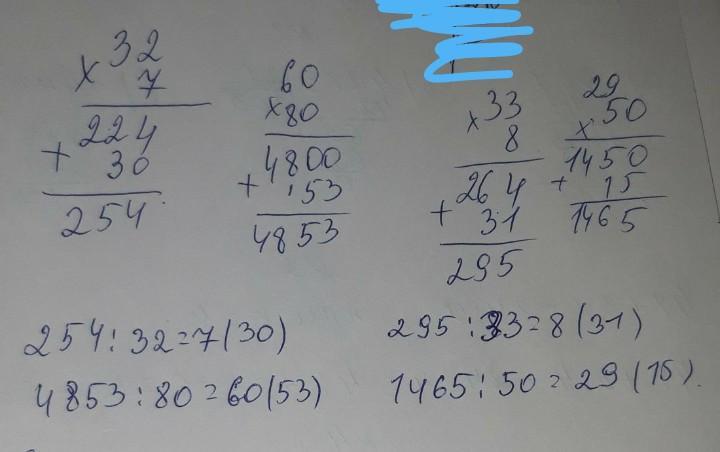 32
× 7
224
+ 30
254
60
×80
4800
+ 53
4853
33
× 8
264
+ 31
295
29
× 50
1450
+ 15
1465
254:32=7(30)
4853:80=60(53)
295:33=8(31)
1465:50=29(15).